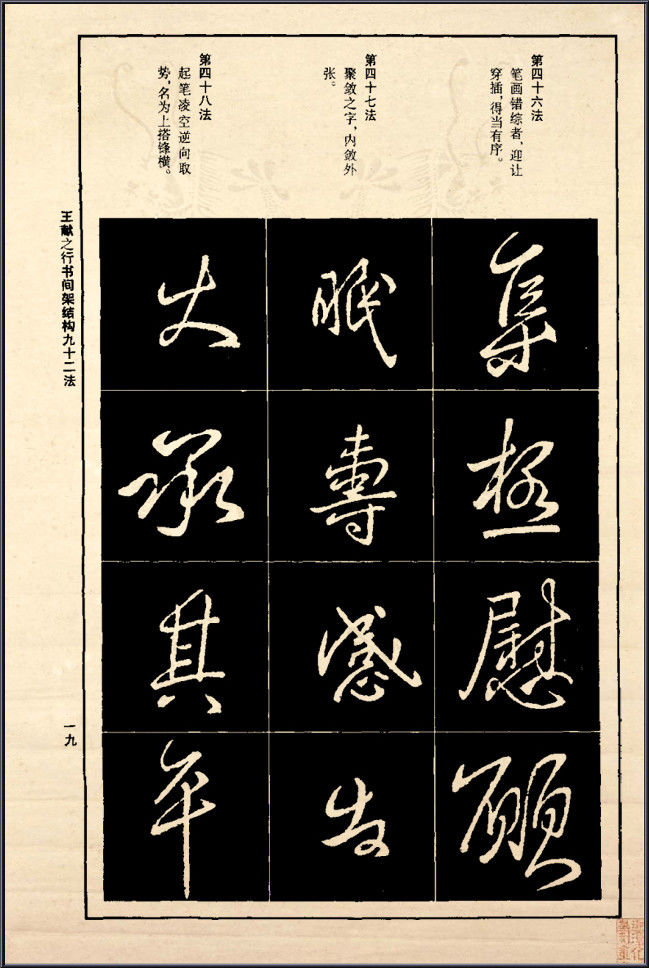 第四十六法
笔画错综者，迎让
穿插，得当有序。
集
极
慰
愿
第四十七法
聚敛之字，内敛外
张。
眠
感
第四十八法
起笔凌空逆向取
势，名为上搭锋横。
承
其
平
王献之行书间架结构九十二法
一九